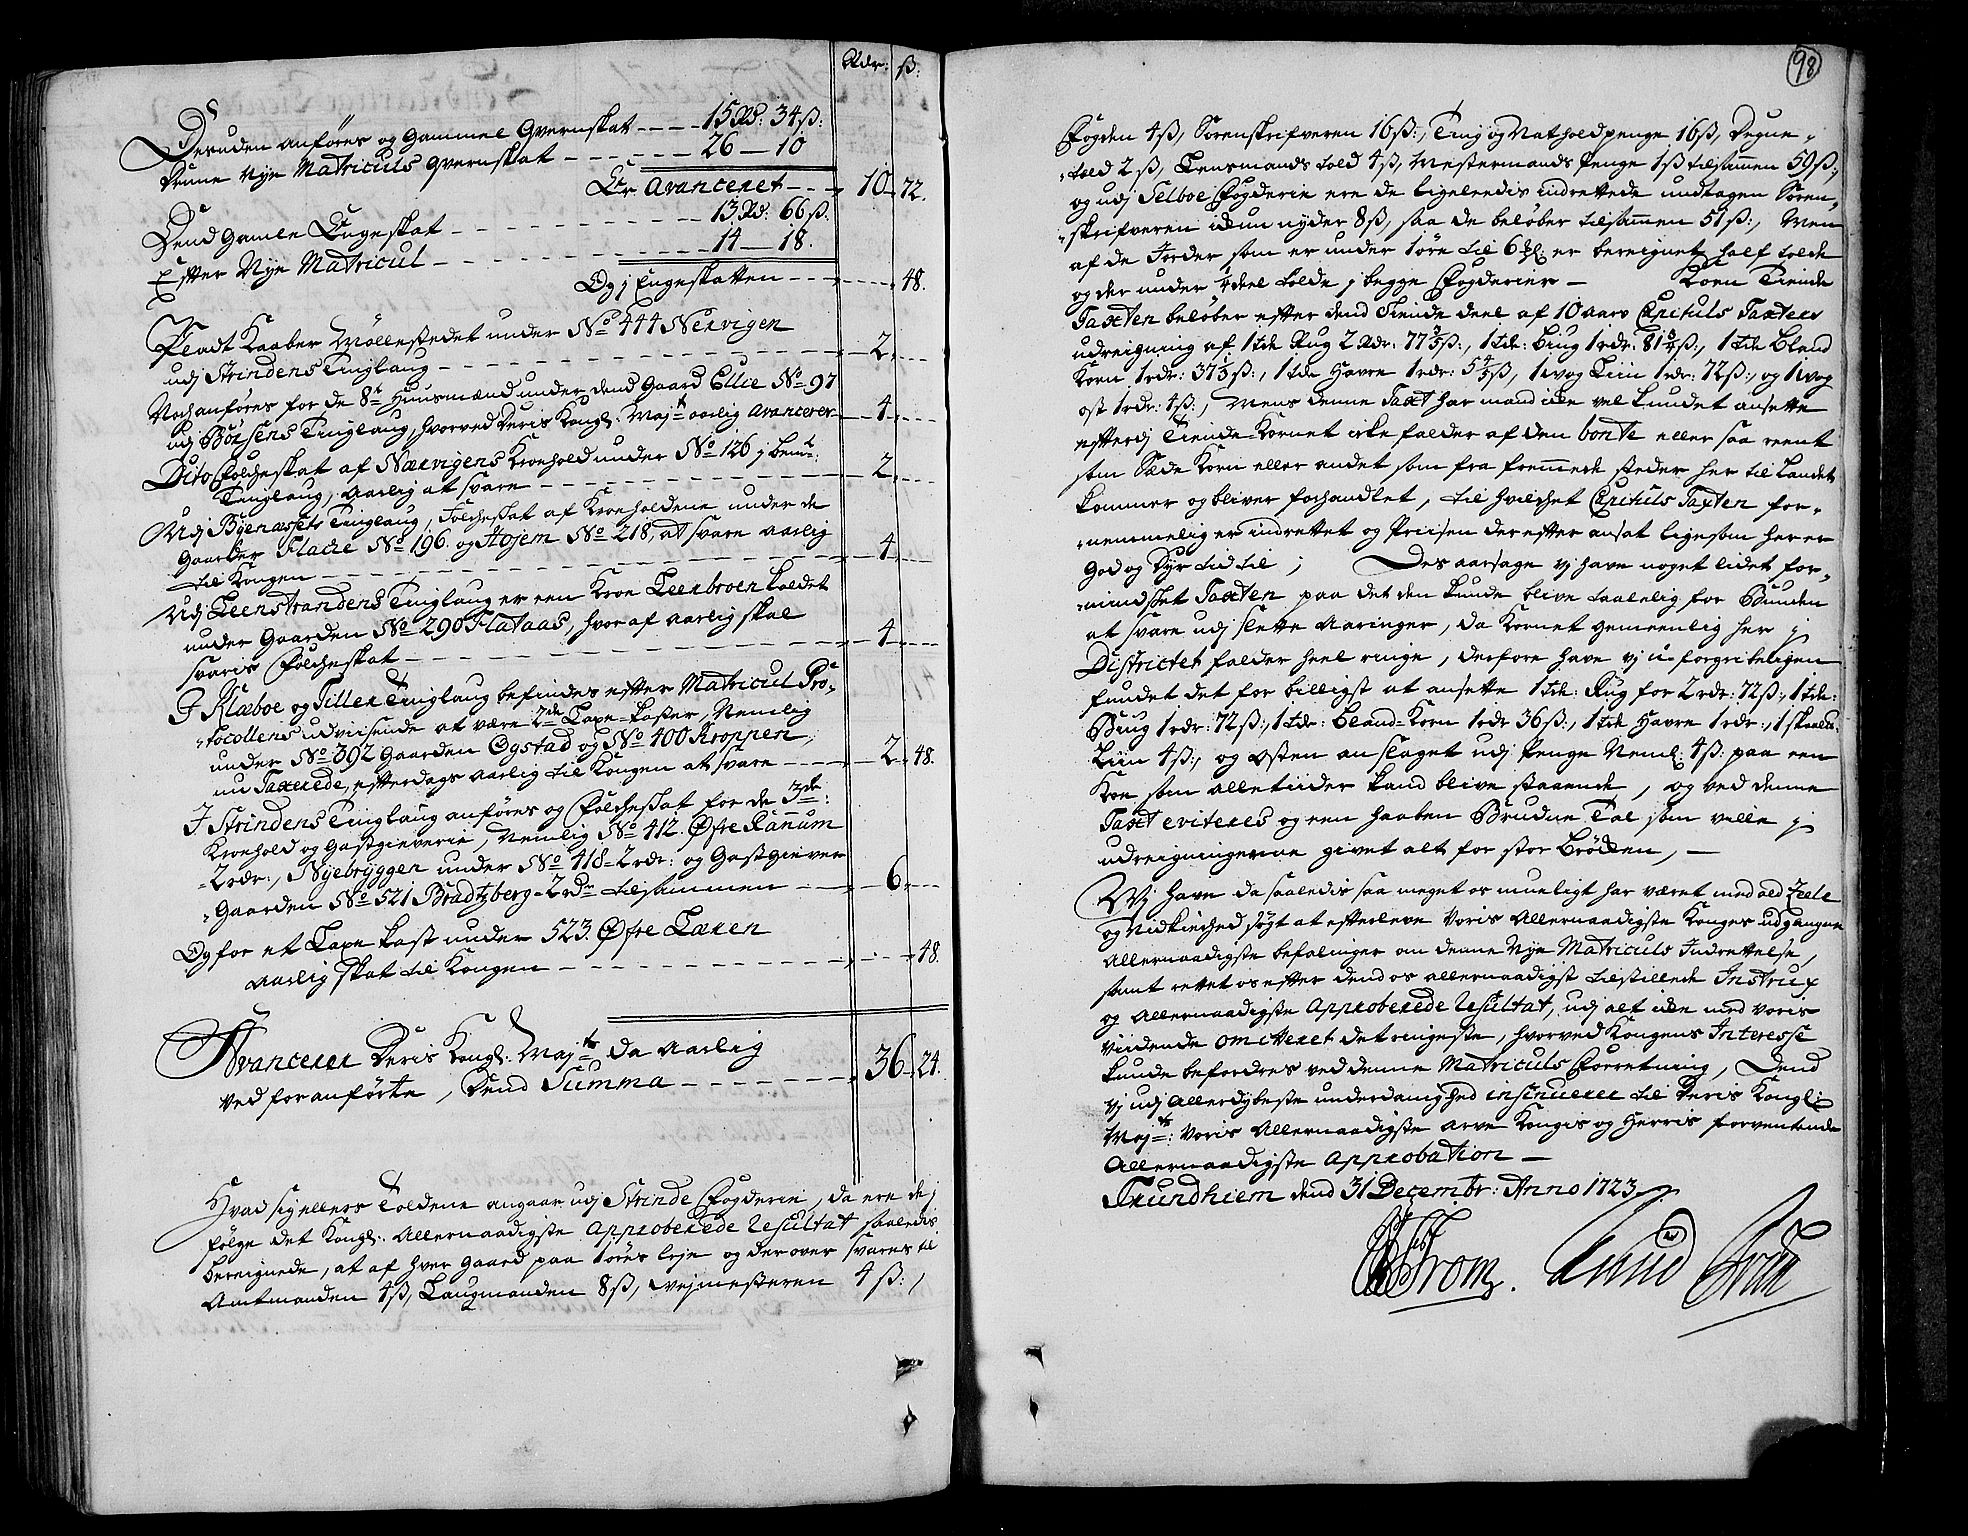 Rdr: ß:
Desuden anføres og Gammel Qvernskat ---- 15 Rd: 34 ß:
Denne Nye Matriculs Qvernskat ------ 26 — 10
Er Avanceret --- 10 - 72.
Dend Gamle Lugeskat ------ 13 Rd: 66 ß.
Efter Nye Matricul ------ 14 — 18.
Og j Engeskatten ------ 48.
Kaaber Møllestedet under No 444 Nervigen
udj Strindens Tinglaug ------ 2 ---
Noch anføres for de 8te Huusmænd under dend Gaard Ellie No 97
udj Børsens Tinglaug, hvorved Deris Kongl: Majts aarlig Avancerer 4 ---
Dito Følcheskat af Nærvigens Kroehold under No 126 j bem:te
Tinglaug, Aarlig at svare ------ 2 ---
Udj Byenæssets Tinglaug, Folcheskat af Kroeholdene under de
Gaarder Flache No 196. og Højem No 218, at svare aarlig
til Kongen ------ 4 ---
Udj Leenstrandens Tinglaug er een Kroe Leerbroen kaldet
under Gaarden No 290 Flataas, hvoraf aarlig skal
svaris Folcheskat ------ 4 ---
J Klæboe og Tiller Tinglaug befindes efter Matricul Pro-
-tocollens udviisende at være 2de Laxe-kaster, Nemlig
under No 392 Gaarden Øgstad og No 400 Kroppen,
nu Taxerede, efterdags aarlig til Kongen at svare ---- 2 - 48.
J Strindens Tinglaug anføres og Følcheskat for de 3de:
Kroehold og Gastgieverie, Nemlig No 412. Øfre Ranum
-2 rdr:, Nyebryggen under No 418 - 2 rdr: og Gastgiever
-Gaarden No 521 Bradtzberg - 2 rdr tilsammen ---- 6 ---
Og for et Laxe kast under 523. Øfre Læren
aarlig skat til Kongen ------ 48.
Avancerer Deris Kongl: Majts da Aarlig
ved foranførte, Dend Summa ------ 36 - 24.
Hvad sig ellers Toldene angaar udj Strinde Fogderie, da ere de j
følge det Kongl: Allernaadigste Approberede Resultat saaledis
bereignede, at af hver Gaard paa 1 øres leje og derover svares til
Amtmanden 4 ß, Laugmanden 8 ß, Vejmesteren 4 ß:,
98
Fogden 4 ß, Sorenskrifveren 16 ß:, Ting og Nathold penge 16 ß, Degne-
-told 2 ß, Lensmands told 4 ß, Mestermands Penge 1 ß tilsammen 59 ß:,
og udj Selboe Fogderie ere de ligeleedis indrettede undtagen Soren-
-skrifveren som nyder 8 ß, saa de beløber tilsammen 51 ß:, Men
af de Jorder som er under 1 øre til 6 Mkl: er bereignet half tolde
og der under 1/4 deel tolde j begge Fogderier — Korn Tiende
Taxten beløber efter dend Tiende deel af 10 aars Capituls Taxters
udreigning af 1 tde Rug 2 Rdr: 77 ß:, 1 tde: Biug 1 rdr: 81 ß:, 1 tde Bland
Korn 1 rdr: 37 ß:, 1 tde Havre 1 rdr: 5 ß, 1 wog Liin 1 rdr: 72 ß:, og 1 wog
ost 1 rdr: 4 ß:, Mens denne Taxt har mand icke vel kundet ansette
efterdj Tiende-Kornet icke falder af den bonte eller saa reent
som Sæde Korn eller andet som fra fremmede steder her til Landet
kommer og bliver forhandlet, til hvilchet Capituls Taxten for-
-nemmelig er indrettet og Priisen derefter ansat ligesom her er
god og Dyr tid til; Des aarsage vj have noget lidet for-
-mindsket Taxten paa det den kunde blive taalelig for Bunden
at svare udj slette Aaringer, da Kornet gemeenlig her j
Districtet falder heel ringe, derfore have vj u-forgribeligen
fundet det for billigst at ansette 1 tde: Rug for 2 rdr: 72 ß:, 1 tde:
Biug 1 rdr: 72 ß:, 1 tde: bland-Korn 1 rdr 36 ß:, 1 tde Havre 1 rdr:, 1 skaalp
Liin 4 ß:, og osten anslaget udj Penge Neml: 4 ß: paa een
Koe som alletiider kand blive staaende, og ved denne
Taxt eviteres og een haaben Brudne Tal som ville j
udreigningerne givet alt for stor Brøcken, —
Wj have da saaledis saa meget os mueligt har været med all Zeele
og Nidkierhed søgt at efterleve Voris Allernaadigste Konges udgangne
Allernaadigste befalinger om denne Nye Matriculs Indrettelse,
samt rettet os efter dend os allernaadigst tilstillede Instrux
og Allernaadigste Approberede Resultat, udj alt icke med voris
viidende omitteret det ringeste, hvorved Kongens Interesse
kunde befordres ved denne Matriculs Forretning, Dend
vj udj Allerdybeste underdanighed insinuerer til Deris Kongl:
Majts: Voris Allernaadigste Arve Kongis og Herris forventende
Allernaadigste Approbation —
Trundhiem dend 31 Decembr: Anno 1723
Strom.